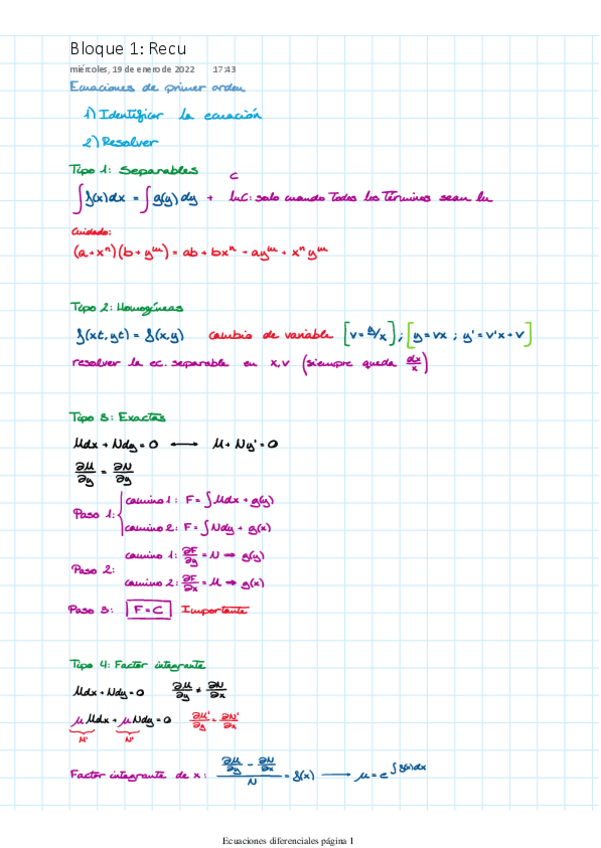 Bloque 1: Recu
miércoles, 19 de enero de 2022 17:43
Ecuaciones de primer orden
1) Identificar la ecuación
2) Resolver
Tipo 1: Separables
C
∫f(x)dx = ∫g(y)dy + lnC: solo cuando Todos los Términos sean ln
Cuidado:
(a+xⁿ)(b+yᵐ) = ab + bxⁿ + ayᵐ + xⁿyᵐ
Tipo 2: Homogéneas
f(xt, yt) = f(x,y) cambio de variable [v = y/x] ; [y = vx ; y' = v'x + v]
resolver la ec. separable en x,v (siempre queda dx/x)
Tipo 3: Exactas
Mdx + Ndy = 0 ⟷ M + Ny' = 0
∂M/∂y = ∂N/∂y
Paso 1: { camino 1: F = ∫Mdx + g(y)
camino 2: F = ∫Ndy + g(x)
Paso 2: camino 1: ∂F/∂y = N → g(y)
camino 2: ∂F/∂x = M → g(x)
Paso 3: F = C Importante
Tipo 4: Factor integrante
Mdx + Ndy = 0 ∂M/∂y ≠ ∂N/∂x
μMdx + μNdy = 0 ∂M'/∂y = ∂N'/∂x
M' N'
Factor integrante de x: (∂M/∂y - ∂N/∂x)/N = f(x) ⟶ μ = e^∫f(x)dx
Ecuaciones diferenciales página 1